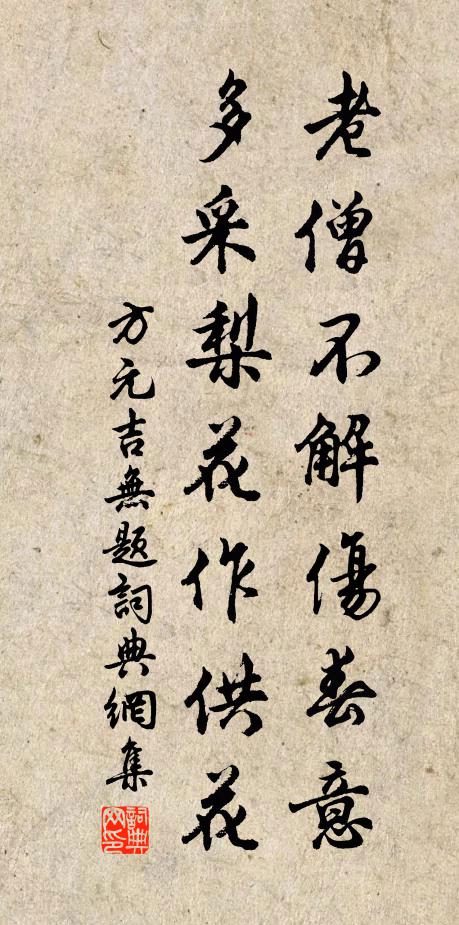 老僧不解傷春意
多采梨花作供花
方元吉無題詞典網集
詞典网印